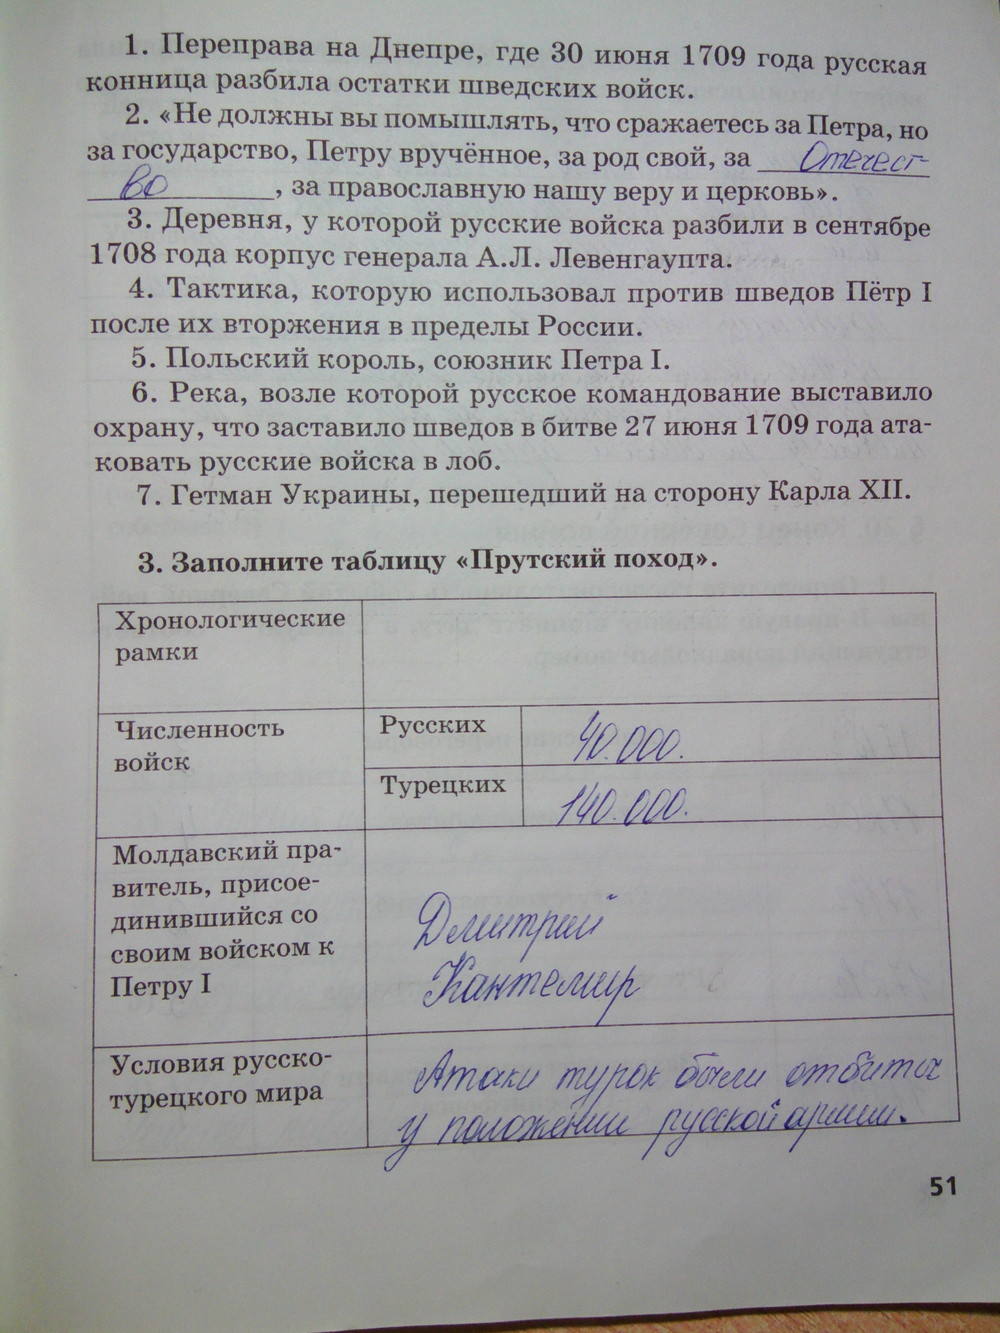 1. Переправа на Днепре, где 30 июня 1709 года русская
конница разбила остатки шведских войск.
2. «Не должны вы помышлять, что сражаетесь за Петра, но
за государство, Петру вручённое, за род свой, за Отечест-
во, за православную нашу веру и церковь».
3. Деревня, у которой русские войска разбили в сентябре
1708 года корпус генерала А.Л. Левенгаупта.
4. Тактика, которую использовал против шведов Пётр I
после их вторжения в пределы России.
5. Польский король, союзник Петра I.
6. Река, возле которой русское командование выставило
охрану, что заставило шведов в битве 27 июня 1709 года ата-
ковать русские войска в лоб.
7. Гетман Украины, перешедший на сторону Карла XII.
3. Заполните таблицу «Прутский поход».
Хронологические
рамки
Численность
войск
Русских
40.000.
Турецких
140.000.
Молдавский пра-
витель, присое-
динившийся со
своим войском к
Петру I
Дмитрий
Кантемир
Условия русско-
турецкого мира
Атаки турок были отбиты
у положении русской армии.
51